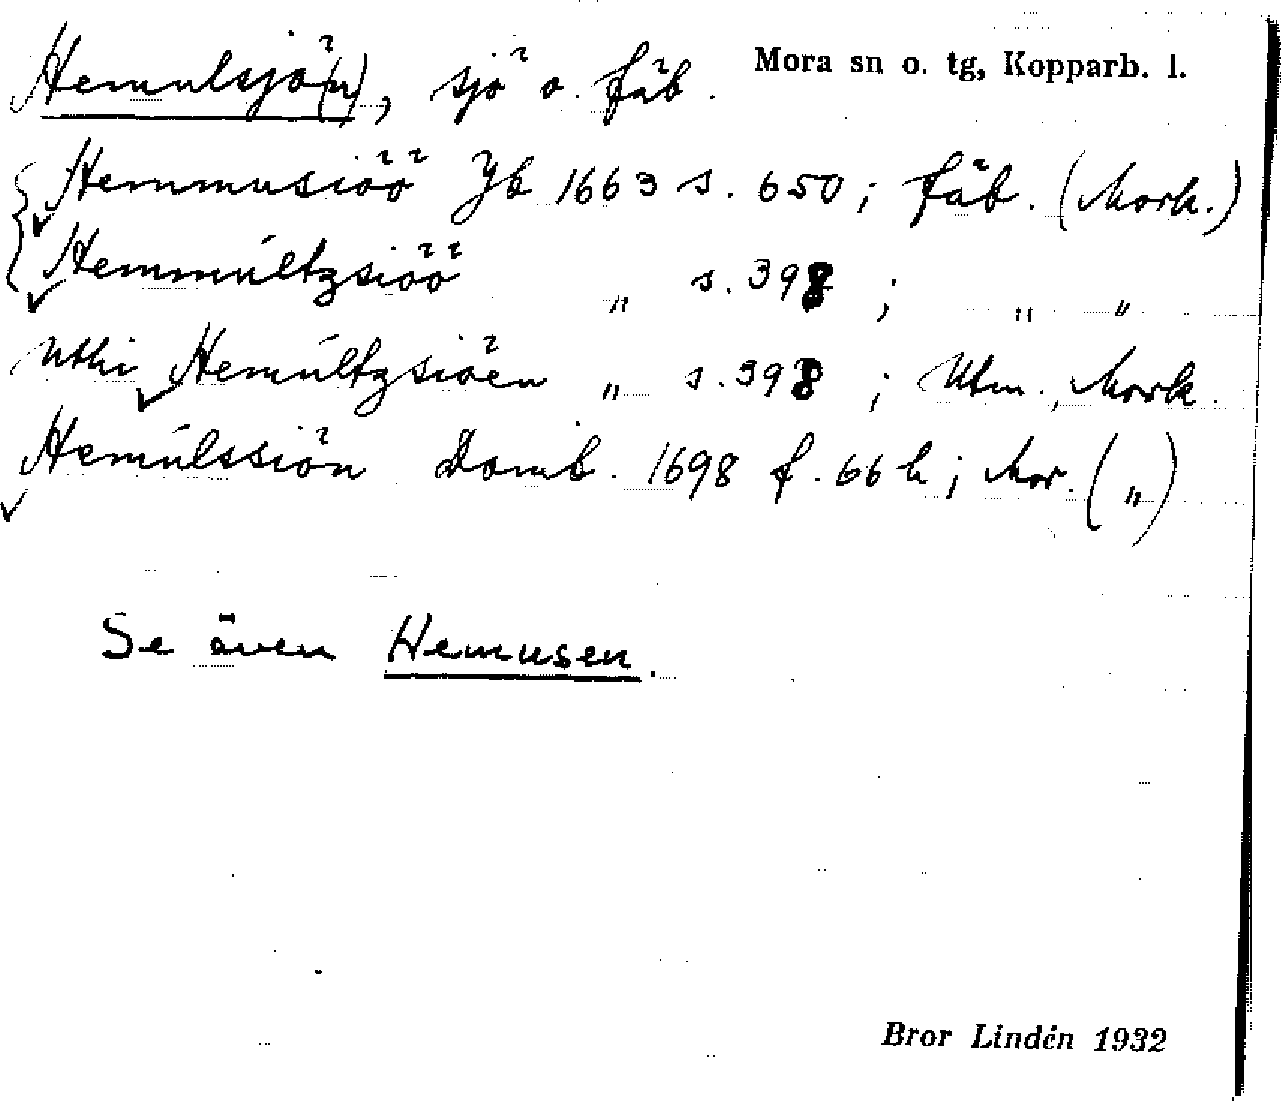 Hemulsjö(n), sjö o. fäb. Mora sn o. tg, Kopparb. l.
Hemmusiöö Jb 1663 s. 650; fäb. (Mork.)
Hemmúltzsiöö „ s. 398; „ „
Uthi Hemúltzsiöen „ s. 398; Utm., Mork.
Hemúlssiön Domb. 1698 f. 66 b; Mor. („)
Se även Hemusen.
Bror Lindén 1932